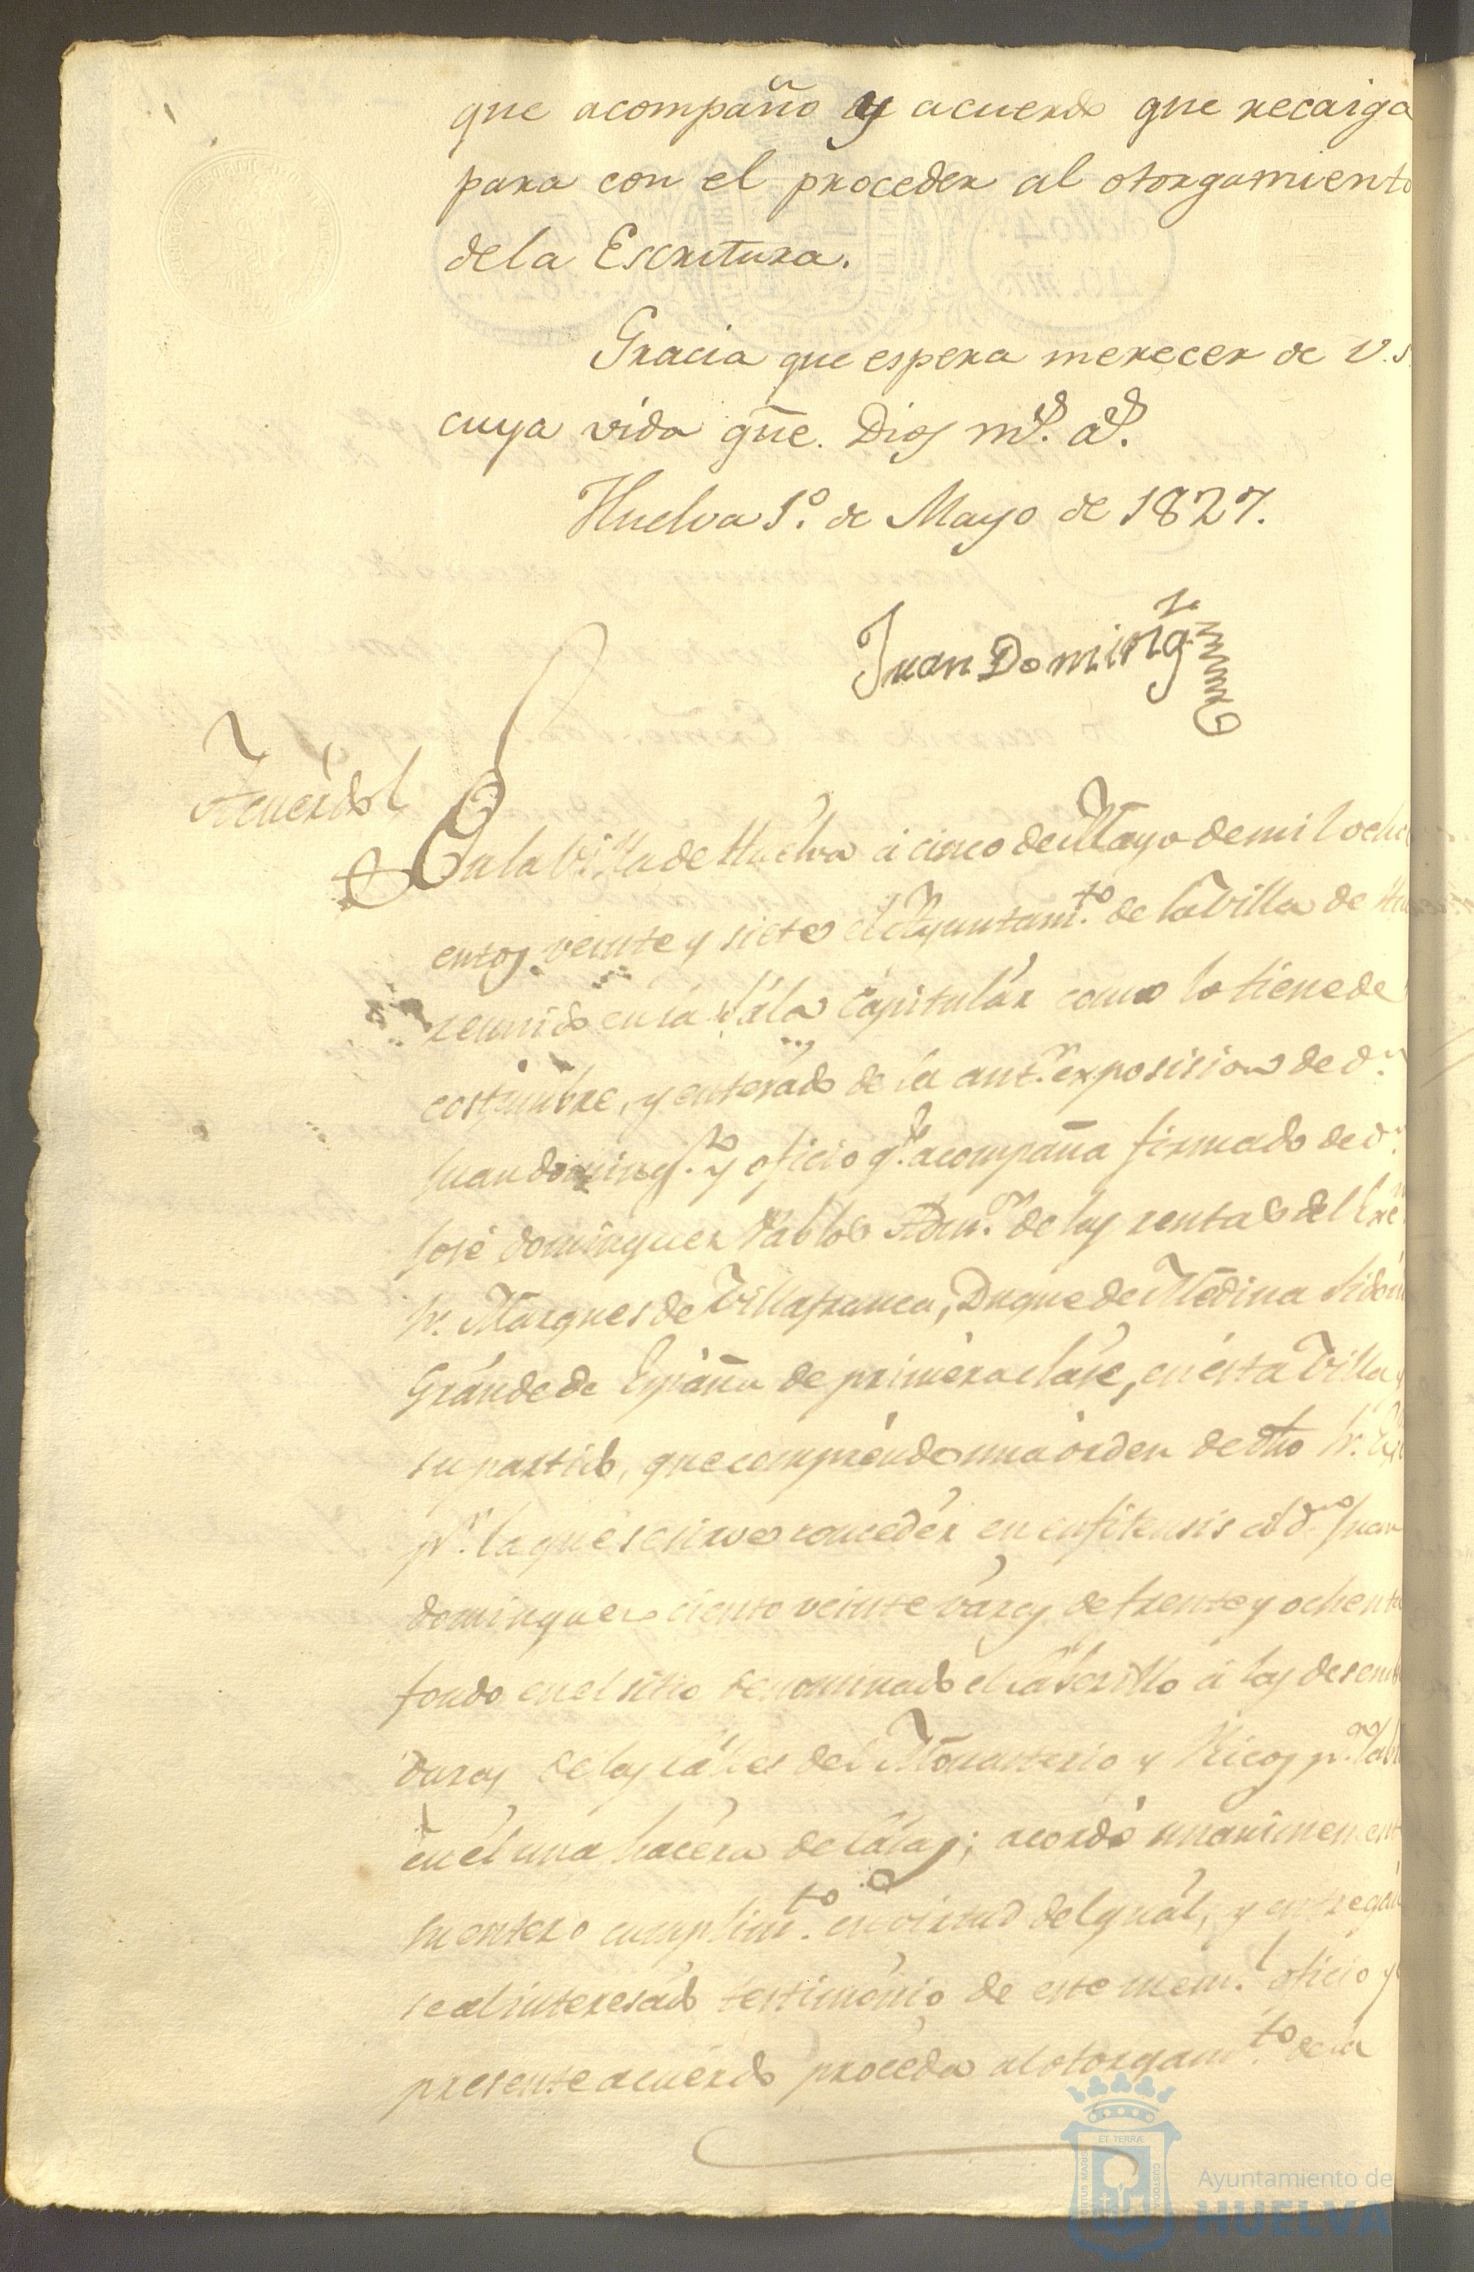 que acompaño y acuerdo que recaiga
para con el proceder al otorgamiento
dela Escritura.
Gracia que espera merecer de V.S.
cuya vida gũe. Dios ms. as.
Huelva 1º. de Mayo de 1827.
Juan Doming.z
Acuerdo
En la Villa de Huelva á cinco de Mayo de mil ochoci
entos veinte y siete el Ayuntam.to de la Villa de
reunido en la Sala Capitulár como lo tiene de
costumbre, y enterado de la ant.r exposision de d.n
Juan doming.z y oficio q.e acompaña firmado de d.n
José dominguez Pablo Adm.or de las rentas del Exc
Sr. Marques de Villafranca, Duque de Medina Sidonia
Grande de España de primera clase, en ésta Villa y
su partido, que comprénde una órden de dho Sr.
p.r la que se sirve concedér en enfiteusis á d.n Juan
dominguez ciento veinte varas de frente y ochenta
fondo en el sitio denominado el Caberillo á las desem
duras de las cálles del Monasterio y Ricos p.a
en él una hacera de cásas; acordó unanimement
su entero cumplim.to en virtud del qual, y entregán
se al interesado testimónio de este mem.l oficio y
presente acuérdo procéda al otorgam.to de la
ET TERRÆ
PORTUS MARIS
CUSTODIA
Ayuntamiento de
HUELVA